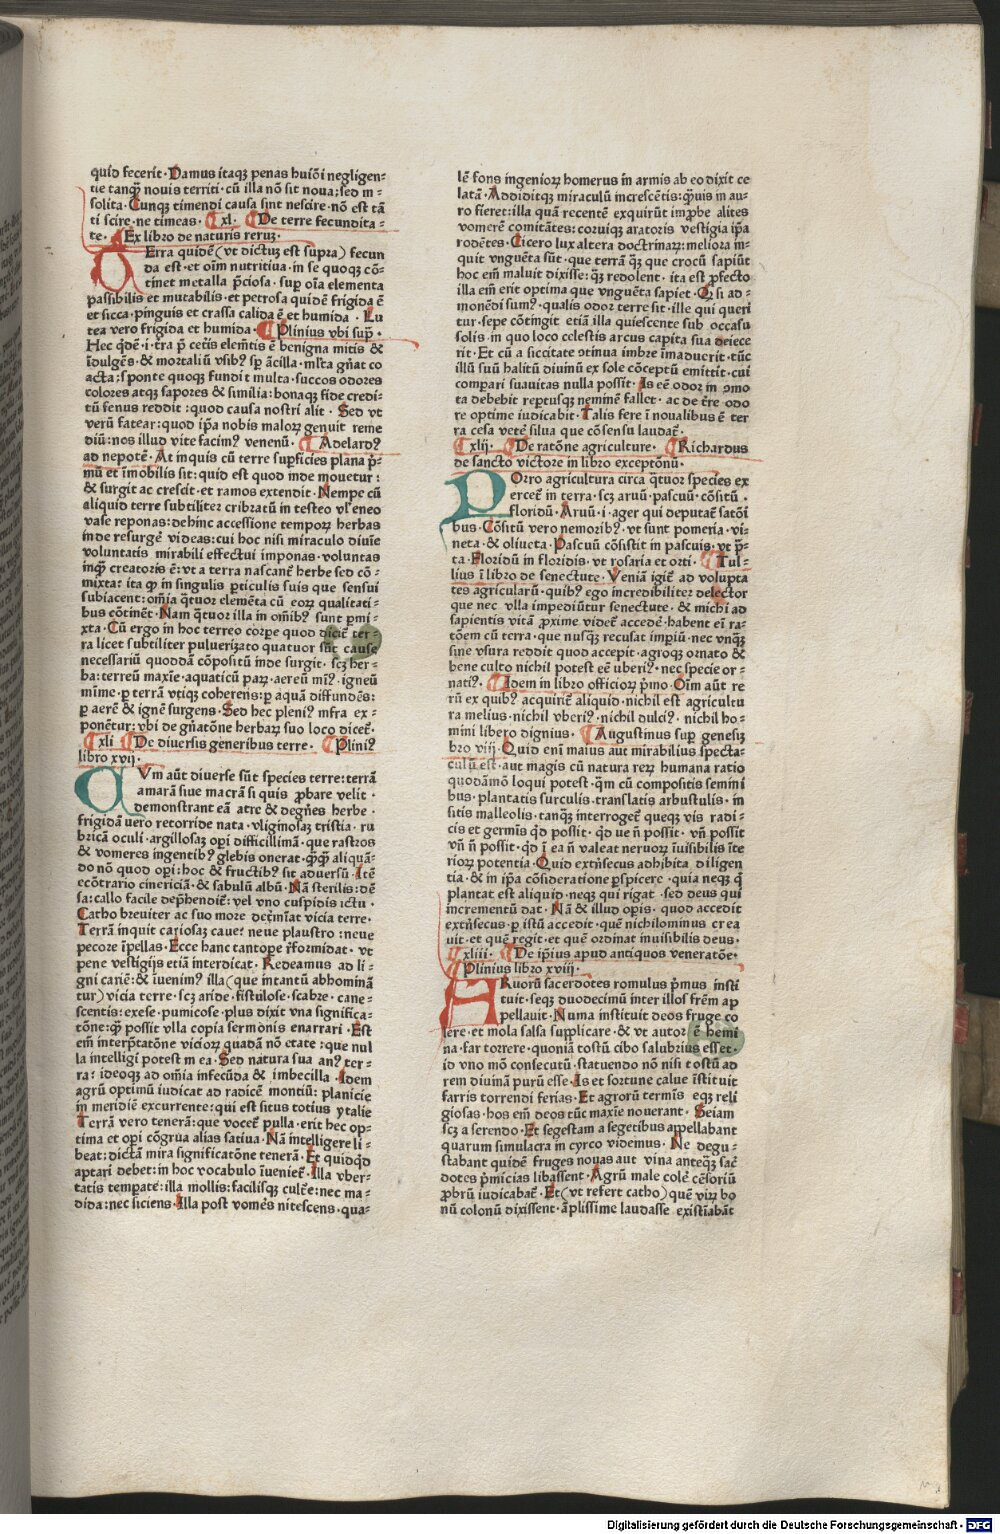 quid fecerit·Damus itaqꝫ penas huiōi negligen-
tie tanqꝫ nouis territi·cū illa nō sit noua;sed in-
solita·Cunqꝫ timendi causa sint nescire·nō est tā
ti scire·ne timeas·¶xl·¶De terre fecundita-
te·¶Ex libro de naturis rerum·
Erra quidē(vt dictum est supra)fecun
da est·et oīm nutritiua·in se quoqꝫ cō-
tinet metalla p̄ciosa·sup oīa elementa
passibilis et mutabilis·et petrosa quidē frigida ē
et sicca·pinguis et crassa calida ē et humida·Lu
tea vero frigida et humida·¶Plinius vbi sup̄·
Hec qdē·i·tra p̄ cetis elemētis ē benigna mitis &
īdulgēs·& mortaliū vsibꝰ sp ācilla·mlta gn̄at co
acta:sponte quoqꝫ fundit multa·succos odores
colores atqꝫ sapores & similia:bonaqꝫ fide credi-
tū fenus reddit:quod causa nostri alit·Sed vt
verū fatear:quod ip̄a nobis maloꝝ genuit reme
diū:nos illud vite facimꝰ venenū·¶Adelardꝰ
ad nepotē·At inquis cū terre supficies plana p̄-
mū et īmobilis sit:quid est quod inde mouetur:
& surgit ac crescit·et ramos extendit·Nempe cū
aliquid terre subtiliter cribratū in testeo vl eneo
vase reponas:dehinc accessione tempoꝝ herbas
inde resurgē videas:cui hoc nisi miraculo diuīe
voluntatis mirabili effectui imponas·voluntas
inqꝫ creatoris ē:vt a terra nascanē herbe sed cō-
mixta:ita qp in singulis pticulis suis que sensui
subiacent:om̄ia qtuor elemēta cū eoꝝ qualitati-
bus cōtinēt·Nam qtuor illa in om̄ibꝰ sunt pmi-
xta·Cū ergo in hoc terreo corpe quod dicit ter-
ra licet subtiliter puluerizato quatuor sūt cause
necessariū quoddā cōpositū inde surgit·scꝫ her-
ba:terreū maxīe·aquaticū parꝝ·aereū mīꝰ·igneū
mīme·p terrā vtiqꝫ coherens:p aquā diffundēs:
p aerē & ignē surgens·Sed hec pleniꝰ infra ex-
ponētur:vbi de gn̄atōne herbaꝝ suo loco dicet·
¶xli ¶De diuersis generibus terre·¶Pliniꝰ
libro xvij·
Vm aūt diuerse sūt species terre:terrā
amarā siue macrā si quis pbare velit·
demonstrant eā atre & degn̄es herbe·
frigidā uero retorride nata·vliginosaꝫ tristia·ru
bricā oculi·argillosaꝫ opi difficillimā·que rastros
& vomeres ingentibꝰ glebis onerat·qꝫqꝫ aliquā-
do nō quod opi:hoc & fructibꝰ sit aduersū·Itē
ecōtrario cinericiā·& sabulū albū·Nā sterilis:dē
sa:callo facile dep̄hendit:vel vno cuspidis ictu·
Catho breuiter ac suo more detmīat vicia terre·
Terrā inquit cariosaꝫ caue:neue plaustro:neue
pecore īpellas·Ecce hanc tantope rformidat·vt
pene vestigijs etiā interdicat·Redeamus ad li-
gni cariē:& iueniꝰ illa(que intantū abhominā
tur)vicia terre·scꝫ aride·fistulose·scabre·cane-
scentis:exese·pumicose·plus dixit vna significa-
tōne:qꝫ possit vlla copia sermōnis enarrari·Est
em̄ interptatōne vicioꝝ quadā nō etate:que nul
la intelligi potest in ea·Sed natura sua anꝰ ter-
ra:ideoqꝫ ad om̄ia infecūda & imbecilla·Idem
agrū optimū iudicat ad radicē montiū:planicie
in meridiē excurrente:qui est situs totius ytalie
Terrā vero tenerā:que vocet pulla·erit hec op-
tima et opi cōgrua alias satiua·Nā intelligere li-
beat:dictā mira significatōne tenerā·Et quidqd
aptari debet:in hoc vocabulo īueniet·Illa vber-
tatis temperate:illa mollis:facilisqꝫ culte:nec ma-
dida:nec siciens·Illa post vomēs nitescens·qua-
lē fons ingenioꝝ homerus in armis ab eo dixit ce
latā·Addiditqꝫ miraculū increscētis:qꝫuis in au-
ro fieret:illa quā recentē exquirūt impbe alites
vomerē comitātes:coruiqꝫ aratoris vestigia ip̄a
rodētes·Cicero lux altera doctrinaꝝ:meliora in-
quit vnguēta sūt·que terrā qꝫ que crocū sapiūt
hoc em̄ maluit dixisse:qꝫ redolent·ita est pfecto
illa em̄ erit optima que vnguēta sapiet·Qꝫ si ad-
monēdi sumꝰ·qualis odor terre sit·ille qui queri
tur·sepe cōtingit etiā illa quiescente sub occasu
solis·in quo loco celestis arcus capita sua deiece
rit·Et cū a siccitate ꝯtinua imbre īmaduerit·tūc
illū suū halitū diuinū ex sole cōceptū emittit·cui
compari suauitas nulla possit·Is eē odor in ꝯmo
ta debebit reptusqꝫ neminē fallet·ac de tre odo
re optime iudicabit·Talis fere ī noualibus ē ter
ra cesa vete silua que cōsensu laudat·
¶xlij·¶De ratōne agriculture·¶Richardus
de sancto victore in libro exceptōnū·
Orro agricultura circa qtuor species ex
ercet in terra·scꝫ aruū·pascuū·cōsitū·
floridū·Aruū·i·ager qui deputat satōi
bus·Cōsitū vero nemoribꝰ·vt sunt pomeria·vi-
neta·& oliueta·Pascuū cōsistit in pascuis·vt p̄-
ta·Floridū in floridis·vt rosaria et orti·¶Tul-
lius ī libro de senectute·Veniā igit ad volupta
tes agricularū·quibꝰ ego incredibiliter delector
que nec vlla impediūtur senectute·& michi ad
sapientis vitā pxime videt accede·habent eī ra-
tōem cū terra·que nusqꝫ recusat imperiū·nec vnqꝫ
sine vsura reddit quod accepit·agroqꝫ ornato &
bene culto nichil potest eē uberiꝰ·nec specie or-
natiꝰ·¶Idem in libro officioꝝ pmo·Oīm aūt re
rū ex quibꝰ acquirit aliquid·nichil est agricultu
ra melius·nichil vberiꝰ·nichil dulciꝰ·nichil ho-
mini libero dignius·¶Augustinus sup genesim
bro viij·Quid enī maius aut mirabilius specta-
culū est·aut magis cū natura reꝝ humana ratio
quodāmō loqui potest·qꝫm cū compositis semini
bus·plantatis surculis·translatis arbustulis·in
sitis malleolis·tanqꝫ interroget queqꝫ vis radi-
cis et germīs qd possit·qd ue n̄ possit·vn̄ possit
vn̄ n̄ possit·qd ī ea n̄ valeat neruoꝝ īuisibilis īte
rioꝝ potentia·Quid extn̄secus adhibita diligen
tia·& in ip̄a cōsideratione pspicere·quia neqꝫ q
plantat est aliquid·neqꝫ qui rigat·sed deus qui
incrementū dat·Nā & illud opis·quod accedit
extn̄secus·p istū accedit·quē nichilominus crea
uit·et quē regit·et quē ordinat inuisibilis deus·
¶xliii·¶De ipsius apud antiquos veneratōe·
¶Plinius libro xviij·
Ruorū sacerdotes romulus pmus insti
tuit·seqꝫ duodecimū inter illos frēm ap
pellauit·Numa instituit deos fruge co
lere·et mola salsa supplicare·& vt autor ē hemi
na·far torrere·quoniā tostū cibo salubrius esset·
id vno mō consecutū·statuendo nō nisi tostū ad
rem diuinā purū esse·Is et fortune calue īstituit
farris torrendi ferias·Et agrorū termīs eqꝫ reli
giosas·hos em̄ deos tūc maxīe nouerant·Seiam
scꝫ a serendo·Et segestam a segetibus appellabant
quarum simulacra in cyrco videmus·Ne degu-
stabant quidē fruges nouas aut vina anteqꝫ sac
dotes pmicias libassent·Agrū male cole cēsoriū
pbrū iudicabat·Et(vt refert catho)quē viꝝ bo
nū colonū dixissent·āplissime laudasse existīabāt
Digitalisierung gefördert durch die Deutsche Forschungsgemeinschaft - DFG